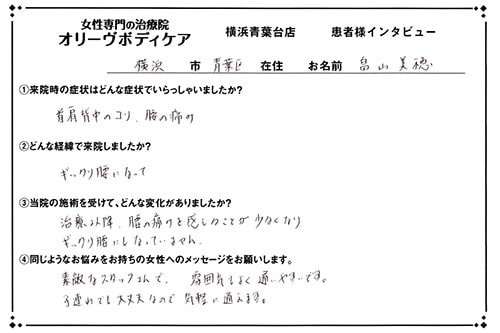 女性専門の治療院
オリーヴボディケア 横浜青葉台店 患者様インタビュー
横浜 市 青葉区 在住 お名前 畠山美穂
①来院時の症状はどんな症状でいらっしゃいましたか?
首肩背中のコリ、腰の痛み
②どんな経緯で来院しましたか?
ギックリ腰になって
③当院の施術を受けて、どんな変化がありましたか?
治療以降、腰の痛みを感じることが少なくなり
ギックリ腰にもなっていません。
④同じようなお悩みをお持ちの女性へのメッセージをお願いします。
素敵なスタッフさんで、雰囲気もよく通いやすいです。
子連れでも大丈夫なので気軽に通えます。